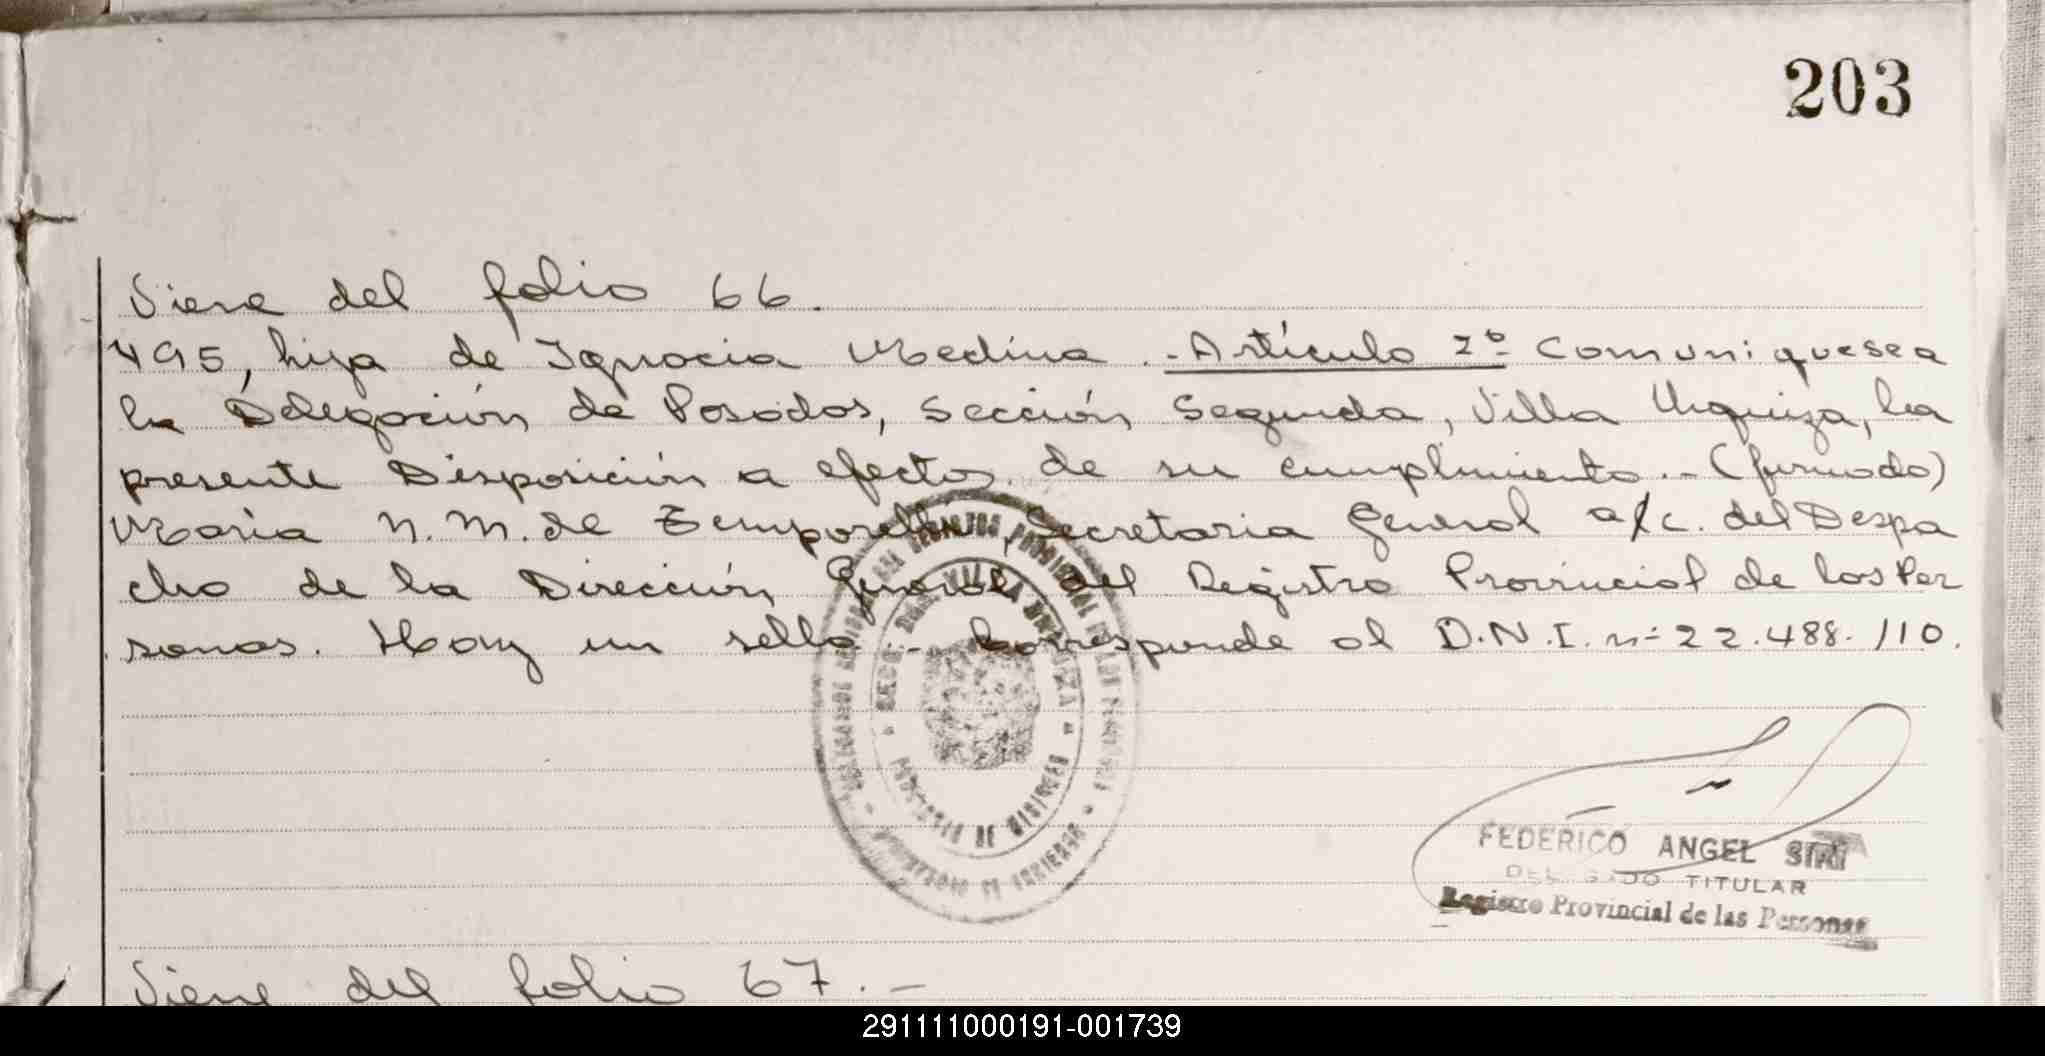 203
Viene del folio 66.
495, hija de Ignacia Medina .- Artículo 2º Comuniquese a
la Delegación de Posadas, Sección Segunda, Villa Urquiza, la
presente Disposición a efectos de su cumplimiento.- (firmado)
Maria N. M. de Temporelli, Secretaria General a/c. del Despa
cho de la Dirección General del Registro Provincial de las Per
sonas. Hay un sello.- Corresponde al D.N.I. nº 22.488.110.
SECC. 2DA. VILLA URQUIZA
PROVINCIA DE MISIONES
FEDERICO ANGEL
TITULAR
Registro Provincial de las Personas
Viene del folio 67.-
291111000191-001739